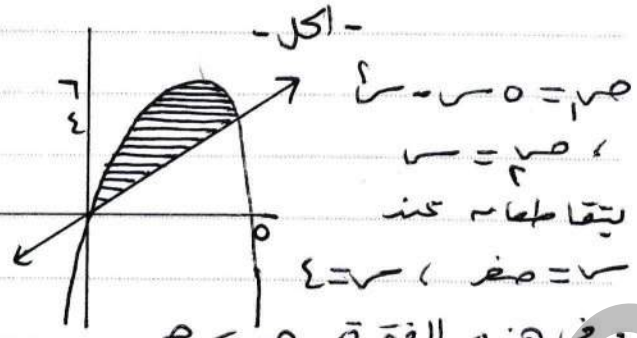 - الحل -
ص١ = ٥س - س٢
، ص٢ = س
يتقاطعان عند
س = صفر ، س = ٤
٦
٤
٥